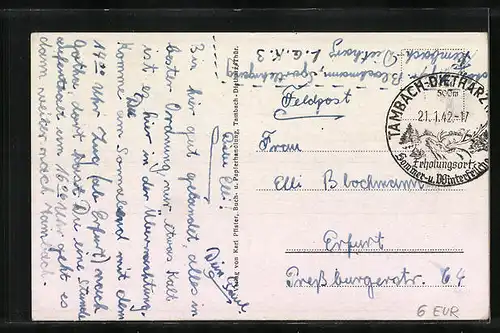 Liebe Elli!
Bin hier gut gelandet, alles in
bester Ordnung, nur etwas kalt
ist es hier in der Übernachtung.
Komme am Sonnabend mit dem
14.00 Uhr Zug (ab Erfurt) nach
Gotha dort hast Du eine Stunde
Aufenthalt um 16 Uhr geht es
dann weiter nach
Dein
Verlag von Karl Pfister, Buch- u. Papierhandlung, Tambach-Dietharz
Blochmann Sportlehrgang
Dietharz
Feldpost
TAMBACH-DIETHARZ
500m
21.1.42.-17
Erholungsort
Sommer-u. Winterfrische
Frau
Elli Blochmann
Erfurt
Preßburgerstr. 64
6 EUR